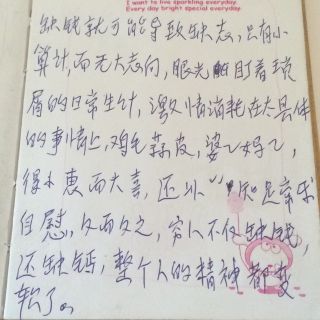 I want to live sparkling everyday.
Every day bright special everyday.
缺钱就可能导致缺志,只有小
算计,而无大志向,眼光盯着琐
屑的日常生计,激情消耗在具体
的事情上,鸡毛蒜皮,婆婆妈妈,
得小惠而大喜,还以“知足常乐
自慰,久而久之,穷人不仅缺钱,
还缺钙,整个人的精神都变
软了。